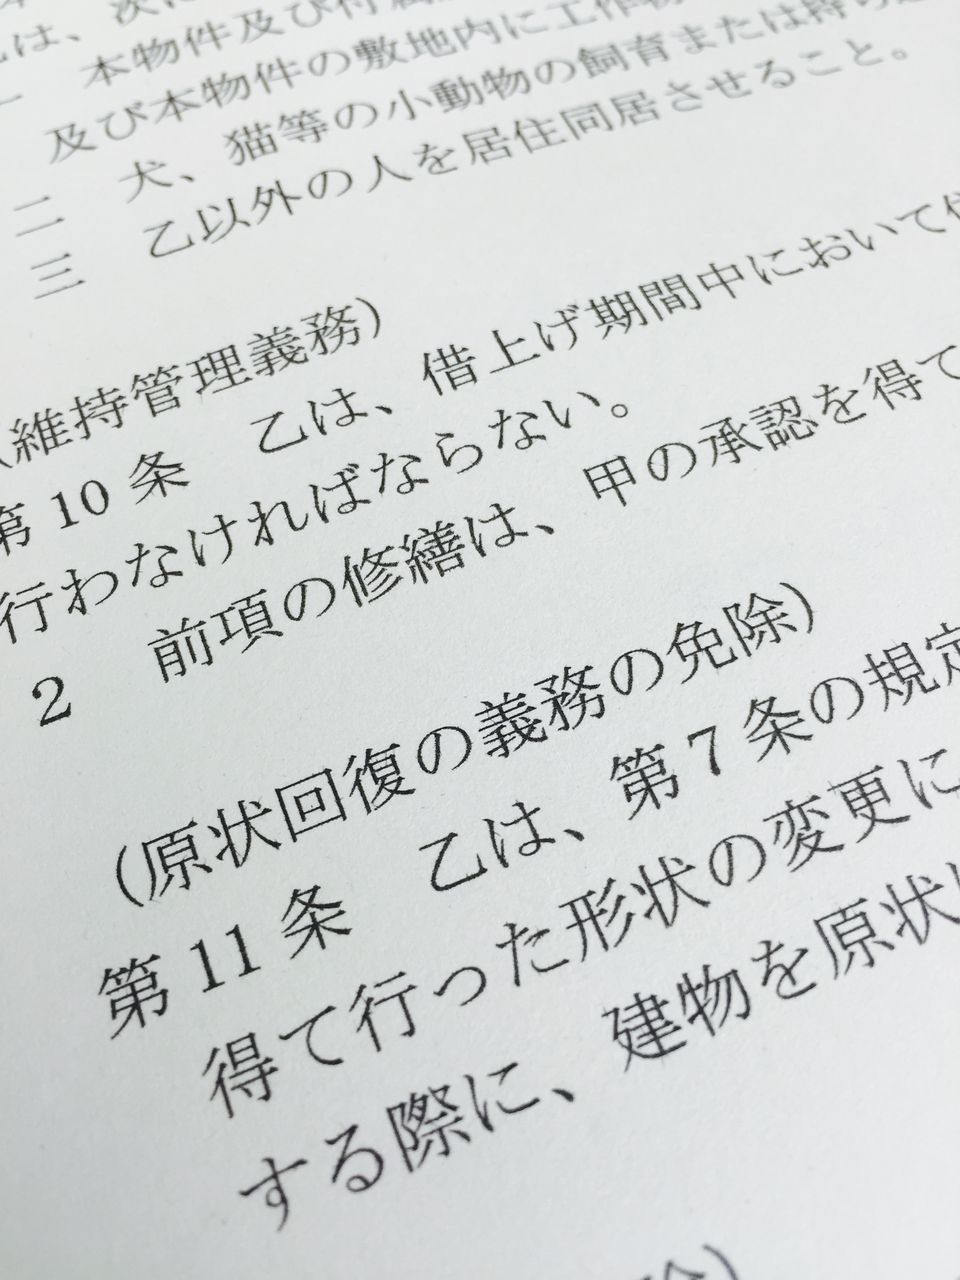 乙は、次に
一　本物件及び付属
及び本物件の敷地内に工作物
二　犬、猫等の小動物の飼育または持ち込
三　乙以外の人を居住同居させること。
（維持管理義務）
第10条　乙は、借上げ期間中において
行わなければならない。
2　前項の修繕は、甲の承認を得て
（原状回復の義務の免除）
第11条　乙は、第7条の規定
得て行った形状の変更に
する際に、建物を原状
除）